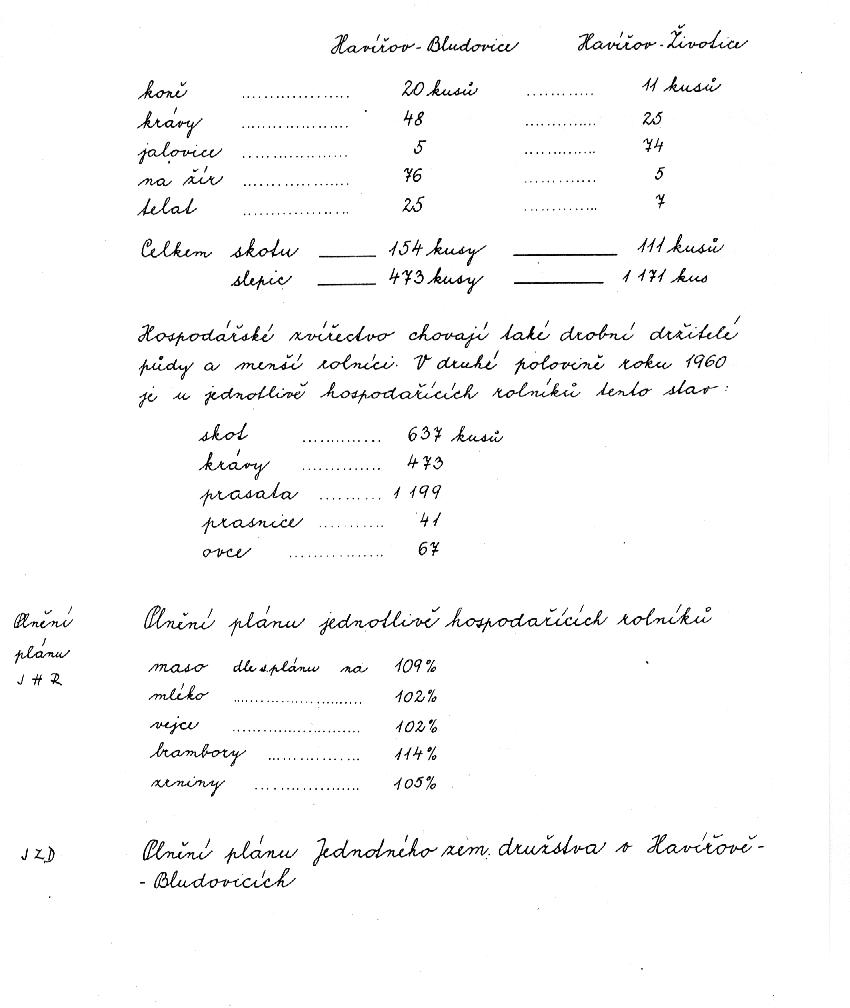 Havířov-Bludovice Havířov-Životice
koně .................... 20 kusů ............. 11 kusů
krávy .................... 48 .............. 25
jalovice .................... 5 .............. 74
na žír .................... 76 ............. 5
telat .................... 25 .............. 7
Celkem skotu ______ 154 kusy __________ 111 kusů
slepic ______ 473 kusy __________ 1 171 kus
Hospodářské zvířectvo chovají také drobní držitelé
půdy a menší rolníci. V druhé polovině roku 1960
je u jednotlivě hospodařících rolníků tento stav:
skot ............... 637 kusů
krávy ............... 473
prasata .......... 1 199
prasnice ........... 41
ovce ................. 67
Plnění
plánu
J H R
Plnění plánu jednotlivě hospodařících rolníků
maso dle s.plánu na 109%
mléko .......................... 102%
vejce .......................... 102%
brambory .................. 114%
zrniny ..................... 105%
JZD
Plnění plánu Jednotného zem. družstva v Havířově-
-Bludovicích